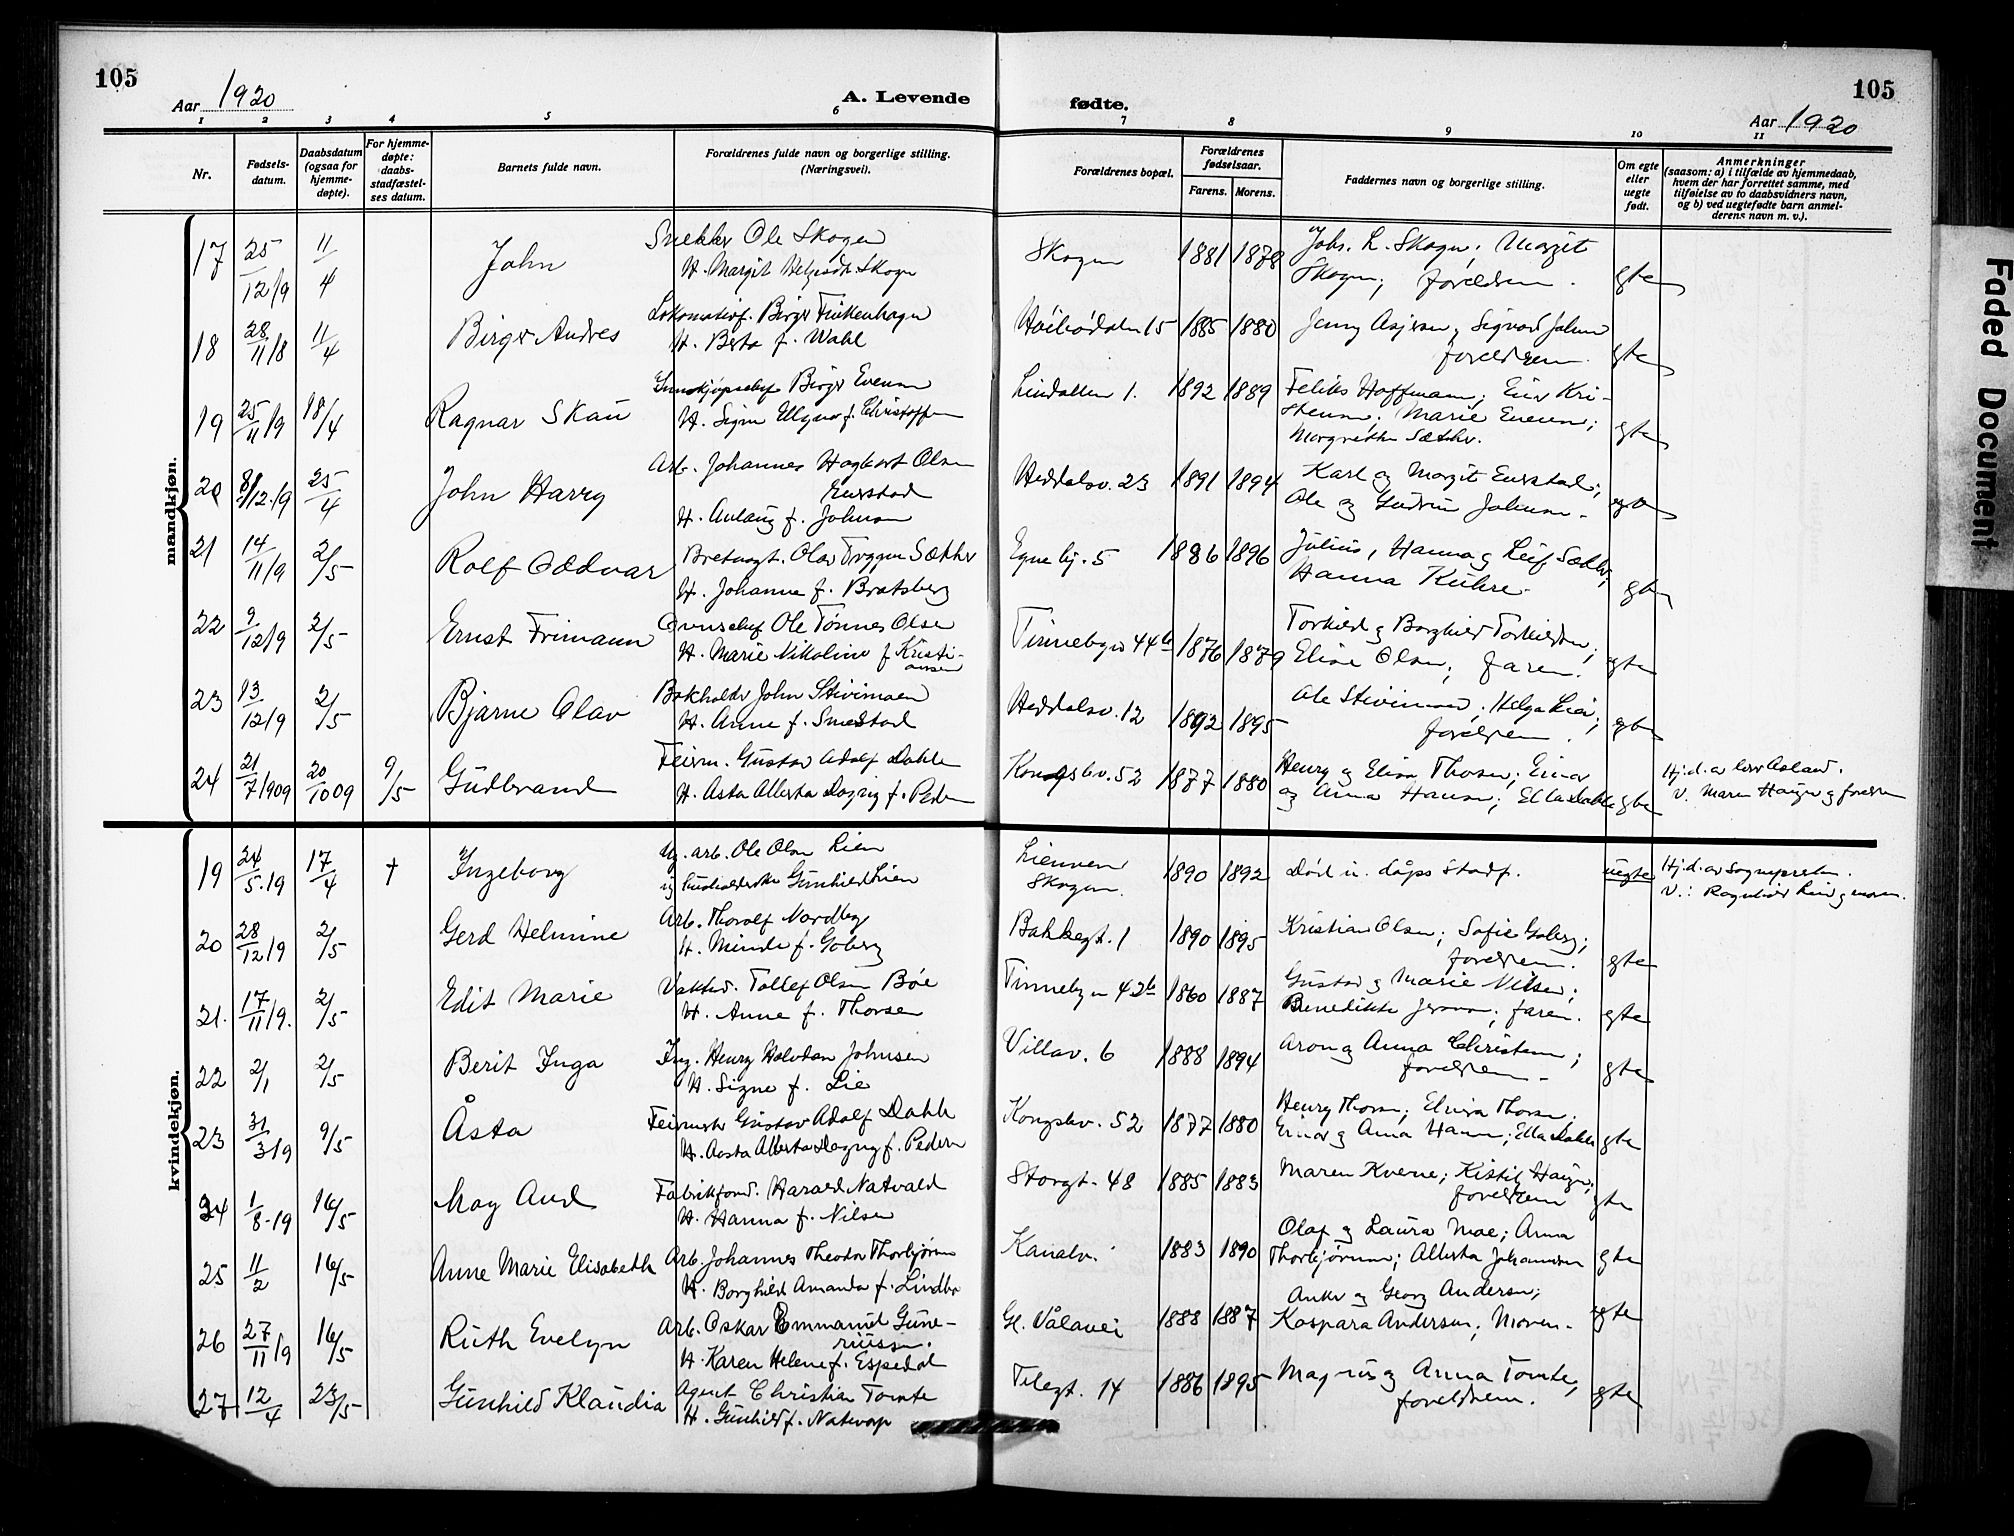 105
Aar 1920
A. Levende
fødte.
105
Aar 1920
1 2 3 4 5 6 7 8 9 10 11
Nr.
Fødsels-
datum.
Daabsdatum
(ogsaa for
hjemme-
døpte).
For hjemme-
døpte:
daabs-
stadfæstel-
ses datum.
Barnets fulde navn.
Forældrenes fulde navn og borgerlige stilling.
(Næringsvei).
Forældrenes bopæl.
Forældrenes
fødselsaar.
Farens. Morens.
Faddernes navn og borgerlige stilling.
Om egte
eller
uegte
født.
Anmerkninger
(saasom: a) i tilfælde av hjemmedaab,
hvem der har forrettet samme, med
tilføielse av to daabsvidners navn,
og b) ved uegtefødte barn anmel-
derens navn m. v.).
mandkjøn.
17 25/12/9 11/4 John Snekker Ole Skogen Skogen 1881 1878 Joh. L. Skogen; Margit gte
H. Margit Skogen Skogen; foreldrene.
18 28/11/8 11/4 Birger Andres Lokomotivf. Birger Finkenhagen 15 1885 1880 Jenny foreldrene. gte
H. Berta f. Wahl
19 25/11/9 18/4 Ragnar Skau Birger Evensen Lindalleen 1. 1892 1889 Feliks Hoffmann; Einar Kri-
H. Signe f. stensen; Marie Evensen; gte
20 8/12/9 25/4 John Harry Arb. Johannes Hagbart Olsen Heddalsv. 23 1891 1894 Karl og Margit Enerstad;
Enerstad Ole og Gudrun Johnsen. egte
H. Aulaug f. Johnsen
21 14/11/9 2/5 Rolf Oddvar Olav Trygve Sæther 5 1886 1896 Julius, Hanna og Leif Sæther;
H. Johanne f. Bratsberg Hanna gte
22 9/12/9 2/5 Ernst Frimann Ole Tønnes Olsen Tinnebyen 44b 1876 1879 Torkild og Borghild Torkildsen;
H. Marie Nikoline f. Kristi-
ansen Elise Olsen; faren. egte
23 13/12/9 2/5 Bjarne Olav Bokholder John Heddalsv. 12 1892 1895 Ole Helga Lia;
H. Anne f. Smestad foreldrene. egte
24 21/7/1909 20/10 09 9/5 Gudbrand Feierm. Gustav Adolf Dahle Kongsbv. 52 1877 1880 Henry og Elvira Thorsen; Einar
H. Asta Alberta Dagny f. Pedersen og Anna Hansen; Ella Dahle gte Hj.d. av
V. Maren og foreldrene
kvindekjøn.
19 24/5.19 17/4 † Ingeborg Ug. arb. Ole Olsen Lien 1890 1892 Død u. dåps stadf. uegte Hj.d. av Sogneprесten.
ug Gunhild Lien Skogen. V.: Ragnhild Lien og moren.
20 28/12/9 2/5 Gerd Helmine Arb. Thoralf Nordby Bakkegt. 1 1890 1895 Kristian Olsen; Sofie Goberg;
H. Minda f. Goberg foreldrene. gte
21. 17/11/9. 2/5 Edit Marie Tollef Olsen Bøe Tinnebyen 42b 1860 1887 Gustav og Marie Nilsen;
H. Anne f. Thorsen Benedikte faren. gte
22 2/1 2/5 Berit Inga Ing. Henry Halvdan Johnsen Villav. 6 1888 1894 Aron og Anna Christensen;
H. Signe f. Lie foreldrene. gte
23 31/3/9 9/5 Åsta Feiermstr Gustav Adolf Dahle Kongsbv. 52 1877 1880 Henry Thorsen; Elvira Thorsen;
H. Aasta Alberta Dagny f. Pedersen Einar og Anna Hansen; Ella Dahle gte
24 1/8-19 16/5 May Aud Fabrikform. Harald Natvald Storgt. 48 1885 1883 Maren Kverne; Kistil
H. Hanna f. Nilsen foreldrene gte
25 11/2 16/5 Anne Marie Elisabeth Arb. Johannes Theodor Thorbjørnsen Kanalv. 1883 1890 Olaf og Laura Moe; Anna
H. Borghild Amanda f. Thorbjørnsen; Alberta Johannesen gte
26 27/11/9 16/5 Ruth Evelyn Arb. Oskar Emmanuel Gune-
riussen. Gl. Vålavei 1888 1887 og Georg Andersen;
H. Karen Helene f. Espedal Kaspara Andersen; Moren. egte
27 12/4 23/5 Gunhild Klaudia Agent Christian Tomte Telegt. 14 1886 1895 Magnus og Anna Tomte,
H. Gunhild f. foreldrene. gte
Faded Document